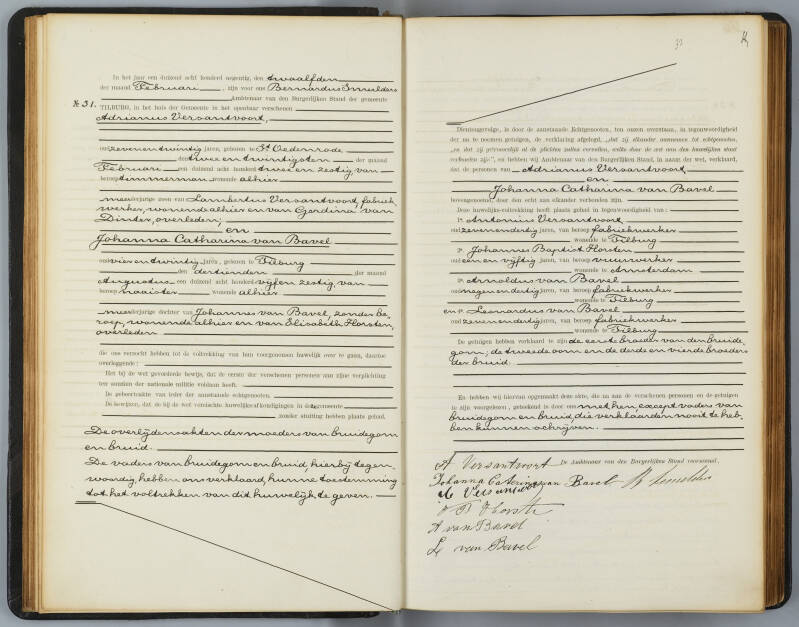 In het jaar een duizend acht honderd negentig, den twaalfden
der maand Februari, zijn voor ons Bernardus Smulders
Ambtenaar van den Burgerlijken Stand der gemeente
№ 31.
TILBURG, in het huis der Gemeente in het openbaar verschenen
Adrianus Versantvoort,
oud zevenentwintig jaren, geboren te St Oedenrode
den tweeentwintigsten der maand
Februari een duizend acht honderd twee en zestig, van
beroep timmerman wonende alhier
meerderjarige zoon van Lambertus Versantvoort, fabriek-
werker, wonende alhier en van Gordina van
Dinter, overleden;
en
Johanna Catharina van Bavel
oud vierentwintig jaren, geboren te Tilburg
den dertienden der maand
Augustus een duizend acht honderd vijfen zestig, van
beroep naaister wonende alhier
meerderjarige dochter van Johannes van Bavel, zonder be-
roep, wonende alhier en van Elisabeth Horsten,
overleden
die ons verzocht hebben tot de voltrekking van hun voorgenomen huwelijk over te gaan, daartoe
overleggende:
Het bij de wet gevorderde bewijs, dat de eerste der verschenen personen aan zijne verplichting
ten aanzien der nationale militie voldaan heeft.
De geboorteakten van ieder der aanstaande echtgenooten.
De bewijzen, dat de bij de wet vereischte huwelijksafkondigingen in deze gemeente
zonder stuiting hebben plaats gehad.
De overlijdensakten der moeders van bruidegom
en bruid.
De vaders van bruidegom en bruid, hierbij tegen-
woordig, hebben ons verklaard, hunne toestemming
tot het voltrekken van dit huwelijk te geven.
Dientengevolge, is door de aanstaande Echtgenooten, ten onzen overstaan, in tegenwoordigheid
der na te noemen getuigen, de verklaring afgelegd, „dat zij elkander aannemen tot echtgenooten,
„en dat zij getrouwelijk al de plichten zullen vervullen, welke door de wet aan den huwelijken staat
verbonden zijn", en hebben wij Ambtenaar van den Burgerlijken Stand, in naam der wet, verklaard,
dat de personen van Adrianus Versantvoort
en
Johanna Catharina van Bavel
bovengenoemd, door den echt aan elkander verbonden zijn.
Deze huwelijks-voltrekking heeft plaats gehad in tegenwoordigheid van:
1o. Antonius Versantvoort
oud zevenendertig jaren, van beroep fabriekwerker
wonende te Tilburg
2o. Johannes Baptist Horsten
oud een en vijftig jaren, van beroep vuurwerker
wonende te Amsterdam
3o. Arnoldus van Bavel
oud negenendertig jaren, van beroep fabriekwerker
wonende te Tilburg
en 4o. Leonardus van Bavel
oud zevenendertig jaren, van beroep fabriekwerker
wonende te Tilburg
De getuigen hebben verklaard te zijn de eerste broeder van den bruide-
gom; de tweede oom en de derde en vierde broeders
der bruid.
En hebben wij hiervan opgemaakt deze akte, die na aan de verschenen personen en de getuigen
te zijn voorgelezen, geteekend is door ons met hen except vaders van
bruidegom en bruid die verklaarden nooit te heb-
ben kunnen schrijven.
De Ambtenaar van den Burgerlijken Stand voornoemd,
A Versantvoort
Johanna Caterina van Bavel B Smulders
A Versantvoort
J B Horsten
A van Bavel
L van Bavel